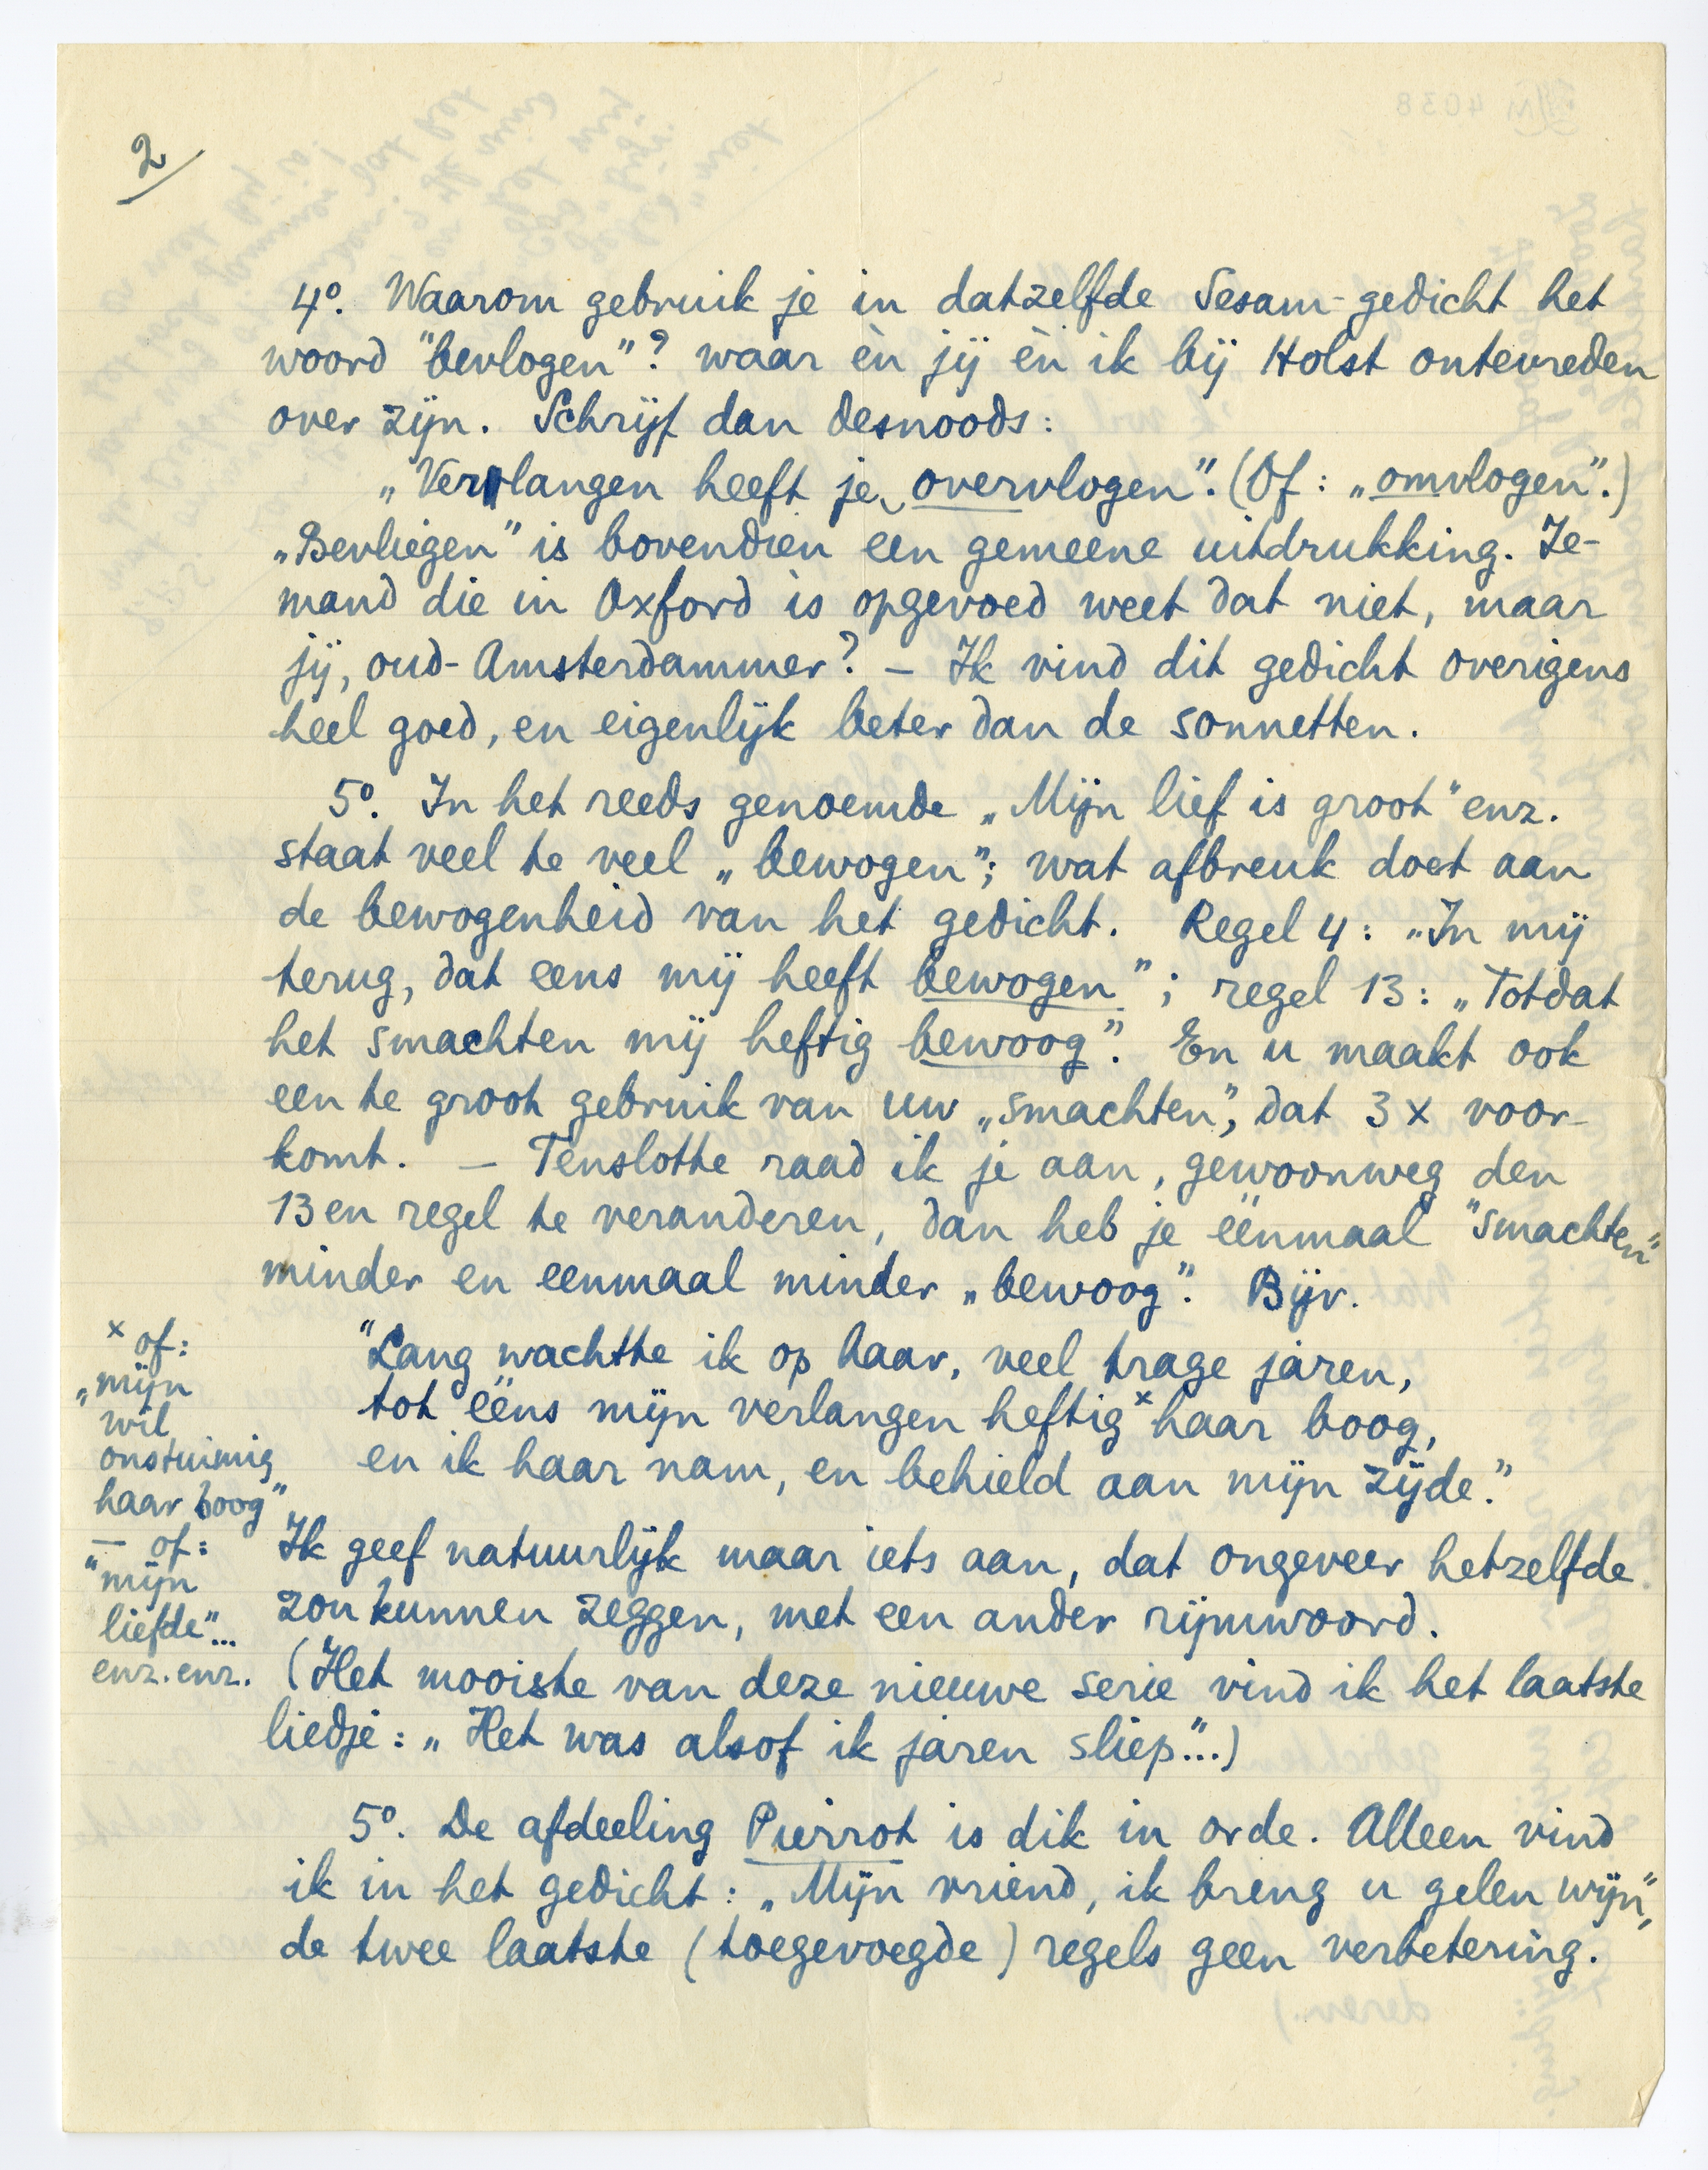 2
4º. Waarom gebruik je in datzelfde Sesam-gedicht het
woord "bevlogen"? waar èn jij èn ik bij Holst ontevreden
over zijn. Schrijf dan desnoods:
„Verlangen heeft je overvlogen". (Of: „omvlogen".)
„Bevliegen" is bovendien een gemeene uitdrukking. Ie-
mand die in Oxford is opgevoed weet dat niet, maar
jij, oud-Amsterdammer? — Ik vind dit gedicht overigens
heel goed, en eigenlijk beter dan de sonnetten.
5º. In het reeds genoemde „Mijn lief is groot" enz.
staat veel te veel „bewogen"; wat afbreuk doet aan
de bewogenheid van het gedicht. Regel 4: „In mij
terug, dat eens mij heeft bewogen"; regel 13: „Totdat
het smachten mij heftig bewoog". En u maakt ook
een te groot gebruik van uw „smachten", dat 3 x voor-
komt. — Tenslotte raad ik je aan, gewoonweg den
13en regel te veranderen, dan heb je éénmaal "smachten"
minder en eenmaal minder „bewoog". Bijv.
"Lang wachtte ik op haar, veel trage jaren,
tot ééns mijn verlangen heftig x haar boog,
en ik haar nam, en behield aan mijn zijde."
x of:
„mijn
wil
onstuimig
haar boog"
— of:
"mijn
liefde"...
enz. enz.
Ik geef natuurlijk maar iets aan, dat ongeveer hetzelfde
zou kunnen zeggen, met een ander rijmwoord.
(Het mooiste van deze nieuwe serie vind ik het laatste
liedje: „Het was alsof ik jaren sliep"...)
5º. De afdeeling Pierrot is dik in orde. Alleen vind
ik in het gedicht: „Mijn vriend, ik breng u gelen wijn",
de twee laatste (toegevoegde) regels geen verbetering.